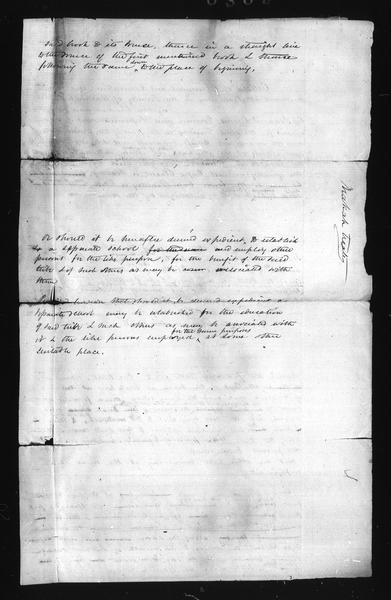 said brook to its source, thence in a straight line
to the source of the first mentioned brook & thence
following the same down to the place of beginning.
or should it be hereafter deemed expedient, to establish
a separate school for the same and employ other
persons for the like purpose, for the benefit of the said
tribe & of such others as may be associated with
them
that should it be deemed expedient a
separate school may be established for the education
of said tribe & such others as may be associated with
it & the like persons employed for the same purposes, at some other
suitable place.